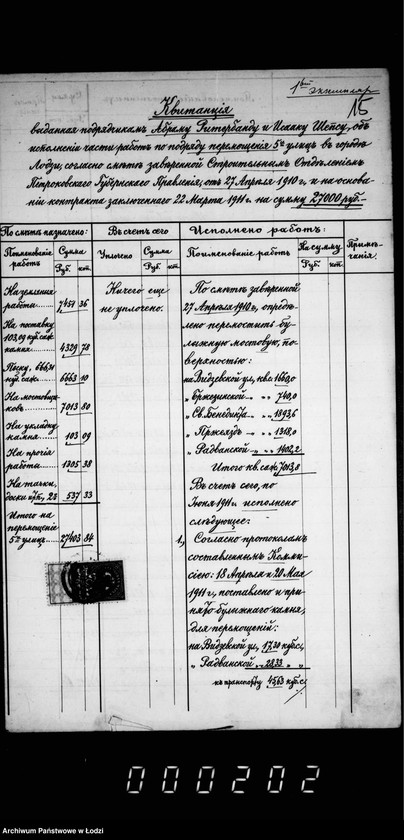 1ый экземпляр
15
Квитанція
выданная подрядчикам Абраму Ритербанду и Исааку Шепсу, объ
исполненіи части работъ по подряду перемощенія 5ти улицъ въ городѣ
Лодзи, согласно смѣтѣ завѣренной Строительнымъ Отдѣленіемъ
Петроковскаго Губернскаго Правленія, отъ 27 Апрѣля 1910 г, и на основа-
ніи контракта заключеннаго 22 Марта 1911 г. на сумму 27000 руб.
По смѣтѣ назначено:
Въ счетъ сего
Исполнено работъ:
Наименованіе работъ
Сумма
Руб. коп.
Уплочено
Сумма
Руб. коп.
Наименованіе работъ
На сумму
Руб. коп.
Примѣ-
чанія.
На земляныя
работы 7457 36
На поставку
103,09 куб. саж.
камня 4329 78
Песку, 666,31
куб. саж. 6663 10
На мостовщи-
ковъ 7013 80
На укладку
камня 103 09
На прочія
работы 1305 38
На тачки,
доски и/п, 2% 537 33
Итого на
перемощеніе
5ти улицъ 27403 84
Ничего еще
не уплочено.
По смѣтѣ завѣренной
27 Апрѣля 1910 г, опредѣ-
лено перемостить бу-
лыжную мостовую, по-
верхностью:
на Видзевской ул, кв.с. 1660,0
" Бржезинской " " 740,0
" Св. Бенедикта " " 1893,6
" Пржеяздъ " " 1318,0
" Радванской " " 1402,2
Итого кв. саж. 7013,8
Въ счетъ сего, по
Іюня 1911 г. исполнено
слѣдующее:
1, Согласно протоколамъ
составленнымъ Комми-
сіею: 18 Апрѣля и 20 Мая
1911 г, поставлено и при-
нято булыжнаго камня,
для перемощенія:
на Видзевской ул, 17,30 куб.с,
" Радванской " " 28,33 "
къ транспорту 45,63 куб.с,
000202
Archiwum Państwowe w Łodzi